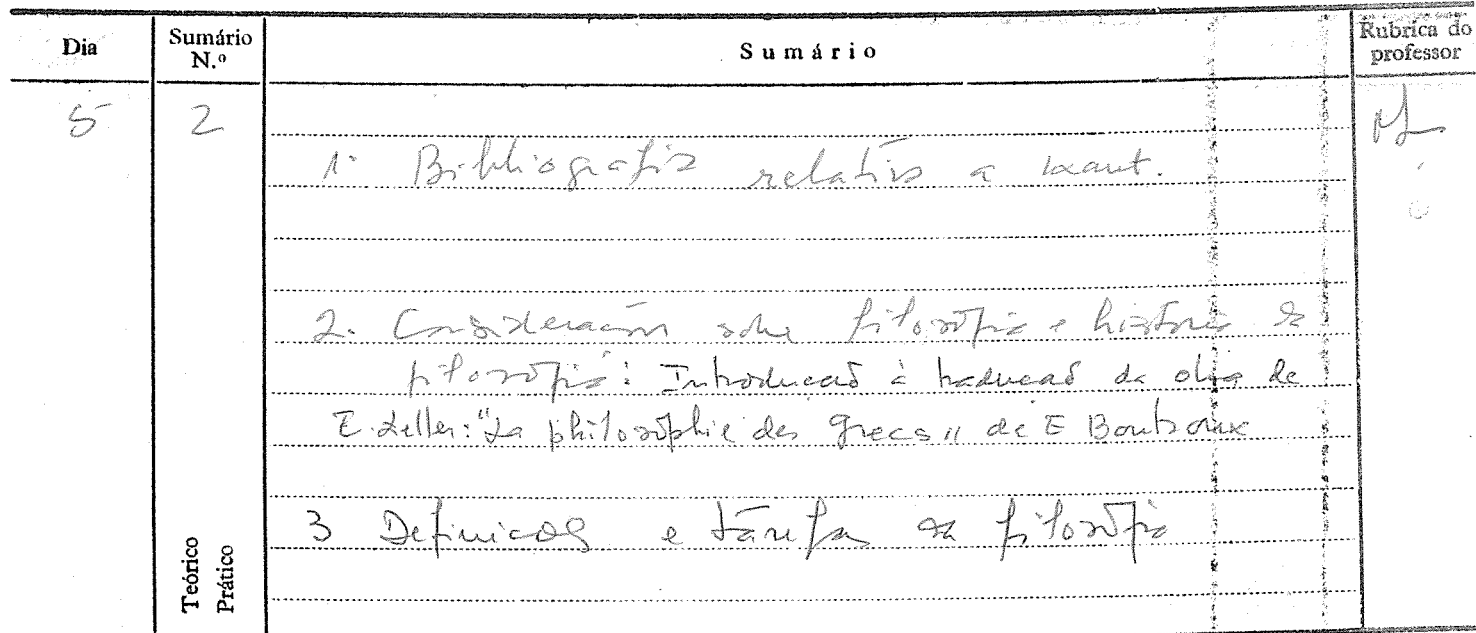 Dia Sumário N.º Sumário Rubrica do professor
5 2
1. Bibliografia relativa a Kant.
2. Consideração sobre filosofia e história da
filosofia: Introducao à traducao da obra de
E. Zeller: "La philosophie des grecs" de E Boutroux
3 Definicao e tarefa da filosofia
Teórico
Prático